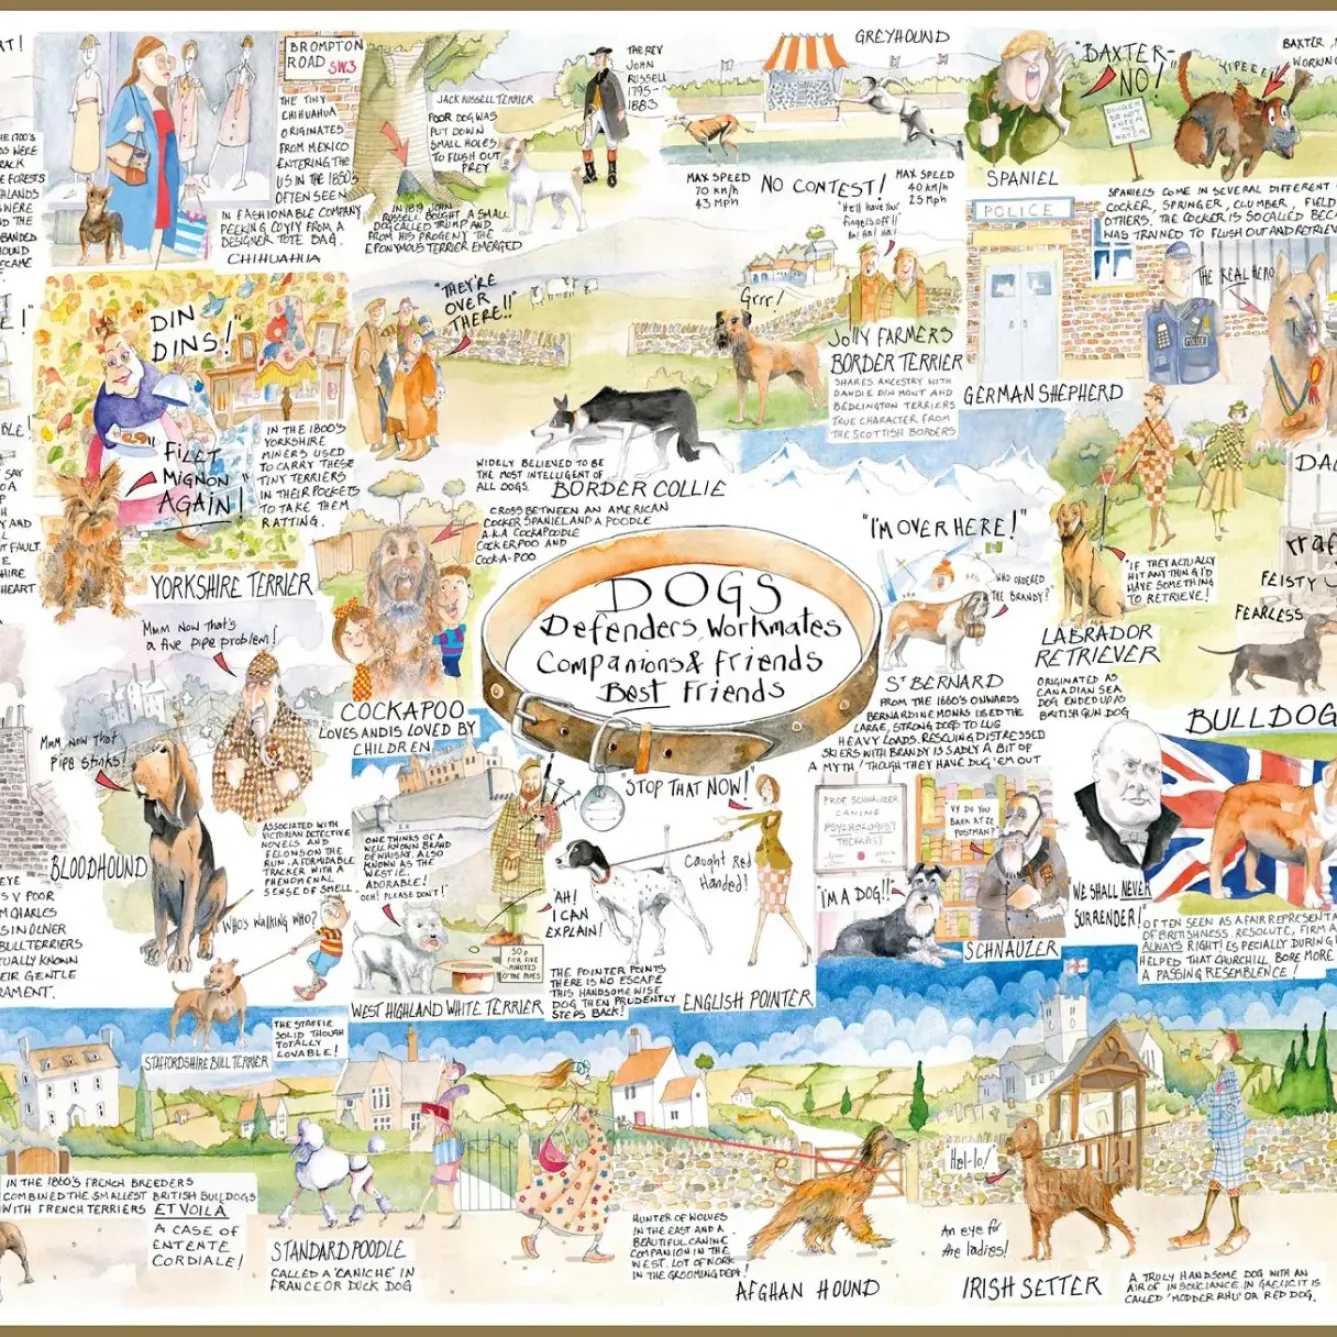 BROMPTON
ROAD SW3
THE TINY
CHIHUAHUA
ORIGINATES
FROM MEXICO
ENTERING THE
US IN THE 1850s
OFTEN SEEN
IN FASHIONABLE COMPANY
PEEKING COYLY FROM A
DESIGNER TOTE BAG.
CHIHUAHUA
JACK RUSSELL TERRIER
POOR DOG WAS
PUT DOWN
SMALL HOLES
TO FLUSH OUT
PREY
IN 1819 JOHN
RUSSELL BOUGHT A SMALL
DOG CALLED TRUMP AND
FROM HIS PROGENY THE
EPONYMOUS TERRIER EMERGED
THE REV
JOHN
RUSSELL
1795-
1883
GREYHOUND
MAX SPEED
70 KM/H
43 MPH
NO CONTEST!
MAX SPEED
40 KM/H
25 MPH
"BAXTER-
NO!"
DANGER
DO NOT
ENTER
THE
WATER
YIPEEEE!
BAXTER,
WORKING
SPANIEL
SPANIELS COME IN SEVERAL DIFFERENT
COCKER, SPRINGER, CLUMBER, FIELD
OTHERS, THE COCKER IS SO CALLED BEC
WAS TRAINED TO FLUSH OUT AND RETRIEVE
THE 1700'S
DS WERE
FORESTS
HLANDS
WERE
D THE
BANDED
OUND
ECAME
DIN
DINS!"
"FILET
MIGNON
AGAIN!"
IN THE 1800'S
YORKSHIRE
MINERS USED
TO CARRY THESE
TINY TERRIERS
IN THEIR POCKETS
TO TAKE THEM
RATTING.
YORKSHIRE TERRIER
"THEY'RE
OVER
THERE!!"
WIDELY BELIEVED TO BE
THE MOST INTELLIGENT OF
ALL DOGS.
BORDER COLLIE
"He'll have your
fingers off!!"
Ha! Ha! Ha!
Grrr!
JOLLY FARMERS
BORDER TERRIER
SHARES ANCESTRY WITH
DANDIE DINMONT AND
BEDLINGTON TERRIERS
TRUE CHARACTER FROM
THE SCOTTISH BORDERS
POLICE
THE REAL HERO
POLICE
GERMAN SHEPHERD
CROSS BETWEEN AN AMERICAN
COCKER SPANIEL AND A POODLE
A.K.A COCKAPOODLE
COCKERPOO AND
COCK-A-POO
COCKAPOO
LOVES AND IS LOVED BY
CHILDREN
DOGS
Defenders, Workmates
Companions & Friends
Best Friends
"I'M OVER HERE!"
"WHO ORDERED
THE BRANDY?"
ST BERNARD
FROM THE 1660'S ONWARDS
BERNARDINE MONKS USED THE
LARGE, STRONG DOGS TO LUG
HEAVY LOADS. RESCUING DISTRESSED
SKIERS WITH BRANDY IS SADLY A BIT OF
A MYTH! THOUGH THEY HAVE DUG 'EM OUT
"IF THEY ACTUALLY
HIT ANYTHING I'D
HAVE SOMETHING
TO RETRIEVE!
LABRADOR
RETRIEVER
ORIGINATED AS
CANADIAN SEA
DOG ENDED UP AS
BRITISH GUN DOG
FEISTY
FEARLESS
BULLDOG
WE SHALL NEVER
SURRENDER!
OFTEN SEEN AS A FAIR REPRESENTA
OF BRITISHNESS. RESOLUTE, FIRM A
ALWAYS RIGHT! ESPECIALLY DURING
HELPED THAT CHURCHILL BORE MORE
A PASSING RESEMBLENCE!
Mmm Now that's
a five pipe problem!
Mmm, now that
Pipe stinks!
BLOODHOUND
ASSOCIATED WITH
VICTORIAN DETECTIVE
NOVELS AND
FELONS ON THE
RUN. A FORMIDABLE
TRACKER WITH A
PHENOMENAL
SENSE OF SMELL
ONE THINKS OF A
WELL KNOWN BRAND
OF WHISKY. ALSO
KNOWN AS THE
WESTIE.
ADORABLE!
OCH! PLEASE DON'T!
50P
FOR FIVE
MINUTES
O' THE PIPES
WEST HIGHLAND WHITE TERRIER
"STOP THAT NOW!"
Caught Red
Handed!
"AH!
I CAN
EXPLAIN!
THE POINTER POINTS
THERE IS NO ESCAPE
THIS HANDSOME WISE
DOG THEN PRUDENTLY
STEPS BACK!
ENGLISH POINTER
PROF SCHNAUZER
CANINE
PSYCHOLOGIST
THERAPIST
VY DO YOU
BARK AT ZE
POSTMAN?"
"I'M A DOG!!"
SCHNAUZER
S V POOR
M CHARLES
S IN OLIVER
BULL TERRIERS
TUALLY KNOWN
EIR GENTLE
RAMENT.
WHO'S WALKING WHO?
STAFFORDSHIRE BULL TERRIER
THE STAFFIE
SOLID THOUGH
TOTALLY
LOVABLE!
IN THE 1860'S FRENCH BREEDERS
COMBINED THE SMALLEST BRITISH BULLDOGS
WITH FRENCH TERRIERS ET VOILÀ
A CASE OF
ENTENTE
CORDIALE!
STANDARD POODLE
CALLED A 'CANICHE' IN
FRANCE OR DUCK DOG
HUNTER OF WOLVES
IN THE EAST AND A
BEAUTIFUL CANINE
COMPANION IN THE
WEST. LOT OF WORK
IN THE GROOMING DEPT!
AFGHAN HOUND
Hal-lo!
An eye for
the ladies!
IRISH SETTER
A TRULY HANDSOME DOG WITH AN
AIR OF INSOUCIANCE. IN GAELIC IT IS
CALLED 'MODDER RHU' OR RED DOG.